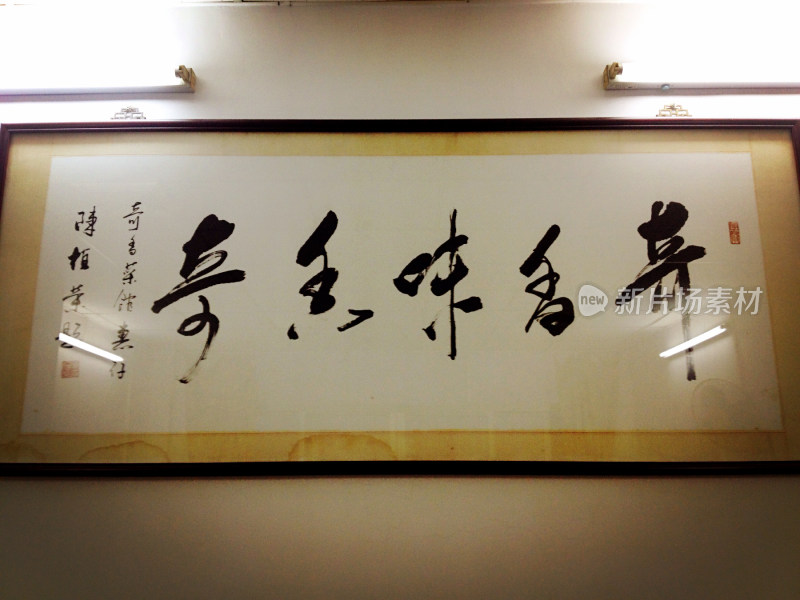 奇香味香奇
奇香菜馆惠存
陳恒榮題
new 新片场素材